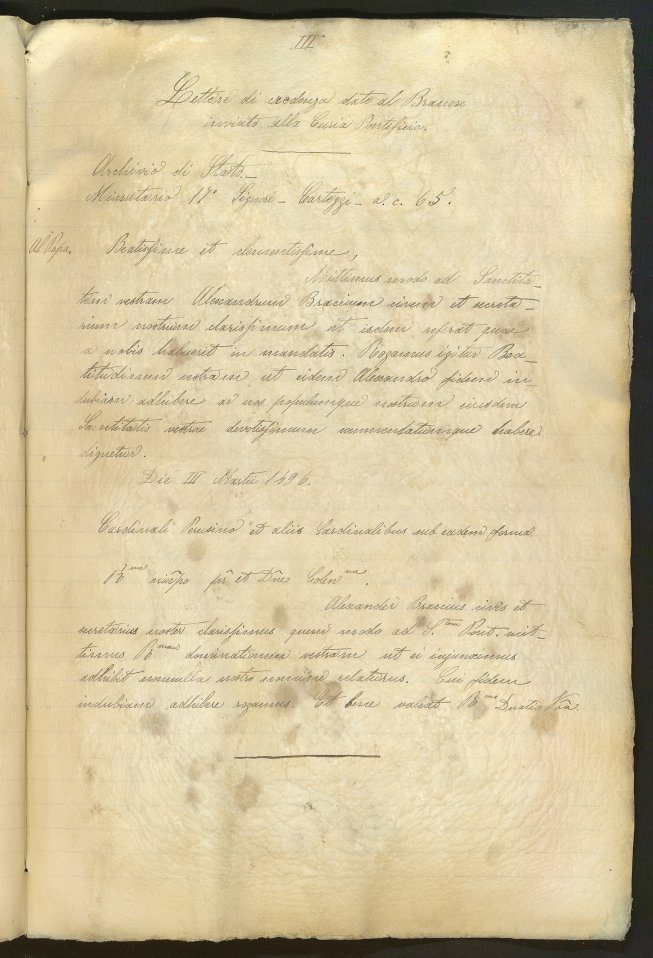 III
Lettere di credenza date al Braccesi
inviato alla Curia Pontificia.
Archivio di Stato_
Minutario 17° Signori – Carteggi – a. c. 65.
Al Papa.
Beatissime et clementissime,
Mittimus modo ad Sanctita-
tem vestram Alexandrum Braccium civem et secreta-
rium nostrum clarissimum ut isdem referat quae
a nobis habuerit in mandatis. Rogamus igitur Bea-
titudinem vestram, ut eidem Alexandro fidem in-
dubiam adhibere ac nos populumque nostrum eiusdem
Sanctitatis vestrae devotissimum commendatumque habere
dignetur.
Die III Martii 1496.
Cardinali Perusino et aliis Cardinalibus sub eadem forma
R.me pr et Dne Colen.me.
Alexander Braccius civis et
secretarius noster clarissimus quem modo ad S.tem Pont. mit-
timus R.mam dominationem vestram ut ei injunximus
adhibit nonnulla nostro nomine relaturus. Cui fidem
indubiam adhibere rogamus. Et bene valeat R.ma Dnatio Vra